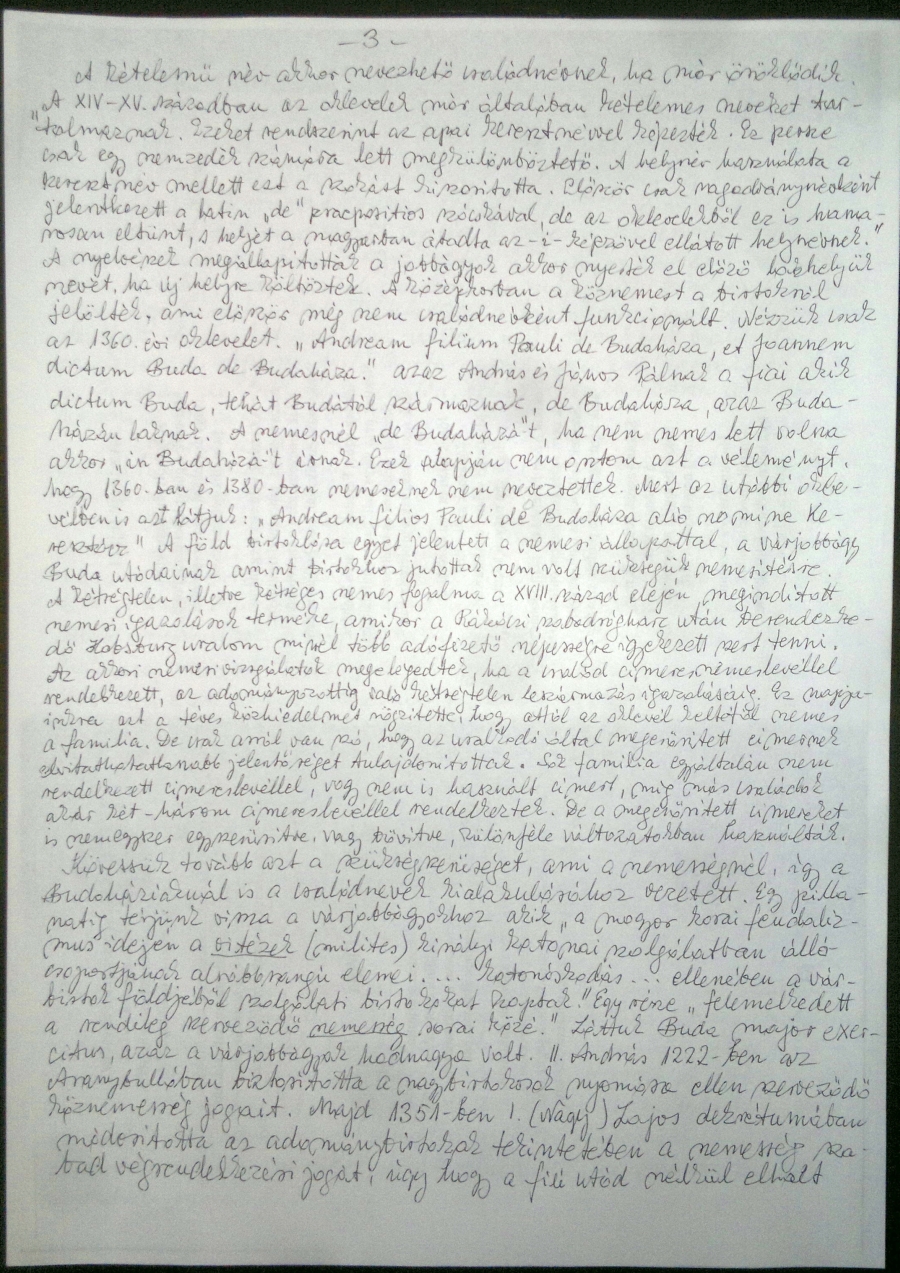 - 3 -
A kételemű név akkor nevezhető családnévnek, ha már öröklődik.
"A XIV-XV. században az oklevelek már általában kételemes neveket tar-
talmaznak. Ezeket rendszerint az apai keresztnévvel képezték. Ez persze
csak egy nemzedék számára lett megkülönböztető. A helynév használata a
keresztnév mellett ezt a szokást kiszorította. Először csak ragadványnévként
jelentkezett a latin „de" praepositios szócskával, de az oklevelekből ez is hama-
rosan eltűnt, s helyét a magyarban átadta az -i- képzővel ellátott helynévnek."
A nyelvészek megállapították a jobbágyok akkor nyerték el előző lakhelyük
nevét, ha új helyre költöztek. A középkorban a köznemest a birtokról
jelölték, ami először még nem családnévként funkcionált. Nézzük csak
az 1360. évi oklevelet. „Andream filium Pauli de Budaháza, et Joannem
dictum Buda de Budaháza." azaz András és János Pálnak a fiai akik
dictum Buda, tehát Budától származnak, de Budaháza, azaz Buda-
házán laknak. A nemesnél „de Budaházá"t, ha nem nemes lett volna
akkor „in Budaházá"-t írnak. Ezek alapján nem osztom azt a véleményt,
hogy 1360-ban és 1380-ban nemeseknek nem neveztettek. Mert az utóbbi okle-
vélben is azt látjuk: „Andream filios Pauli de Budaháza alio nomine Ke-
" A föld birtoklása egyet jelentett a nemesi állapottal, a várjobbágy
Buda utódainak amint birtokhoz jutottak nem volt szükségük nemesítésre.
A kétségtelen, illetve kétséges nemes fogalma a XVIII. század elején megindított
nemesi igazolások terméke, amikor a Rákóczi szabadságharc után berendezke-
dő Habsburg uralom minél több adófizető népességre igyekezett szert tenni.
Az akkori nemesi vizsgálatok megelégedtek, ha a család címeres nemeslevéllel
rendelkezett, az adományozottig való kétségtelen leszármazás igazolásáig. Ez
azt a téves közhiedelmet rögzítette, hogy attól az oklevél keltétől nemes
a família. De csak arról van szó, hogy az uralkodó által megerősített címernek
elvitathatatlanabb jelentőséget tulajdonítottak. Sok família egyáltalán nem
rendelkezett címereslevéllel, vagy nem is használt címert, míg más családok
akár két-három címereslevéllel rendelkeztek. De a megerősített címereket
is nemegyszer egyszerűsítve, vagy bővítve, különféle változatokban használták.
Kövessük tovább azt a szükségszerűséget, ami a nemességnél, így a
Budaháziaknál is a családnevek kialakulásához vezetett. Egy pilla-
natig térjünk vissza a várjobbágyokhoz akik „a magyar korai feudaliz-
mus idején a vitézek (milites) királyi katonai szolgálatban álló
csoportjának alsóbbrangú elemei.... katonáskodás... ellenében a vár-
birtok földjéből szolgálati birtokokat kaptak." Egy része „felemelkedett
a rendileg szerveződő nemesség sorai közé." Láttuk Buda major exer-
citus, azaz a várjobbágyok hadnagya volt. II. András 1222-ben az
Aranybullában biztosította a nagybirtokosok nyomása ellen szerveződő
köznemesség jogait. Majd 1351-ben I. (Nagy) Lajos dekrétumában
módosította az adománybirtokok tekintetében a nemesség sza-
bad végrendelkezési jogát, úgy hogy a fiú utód nélkül elhalt